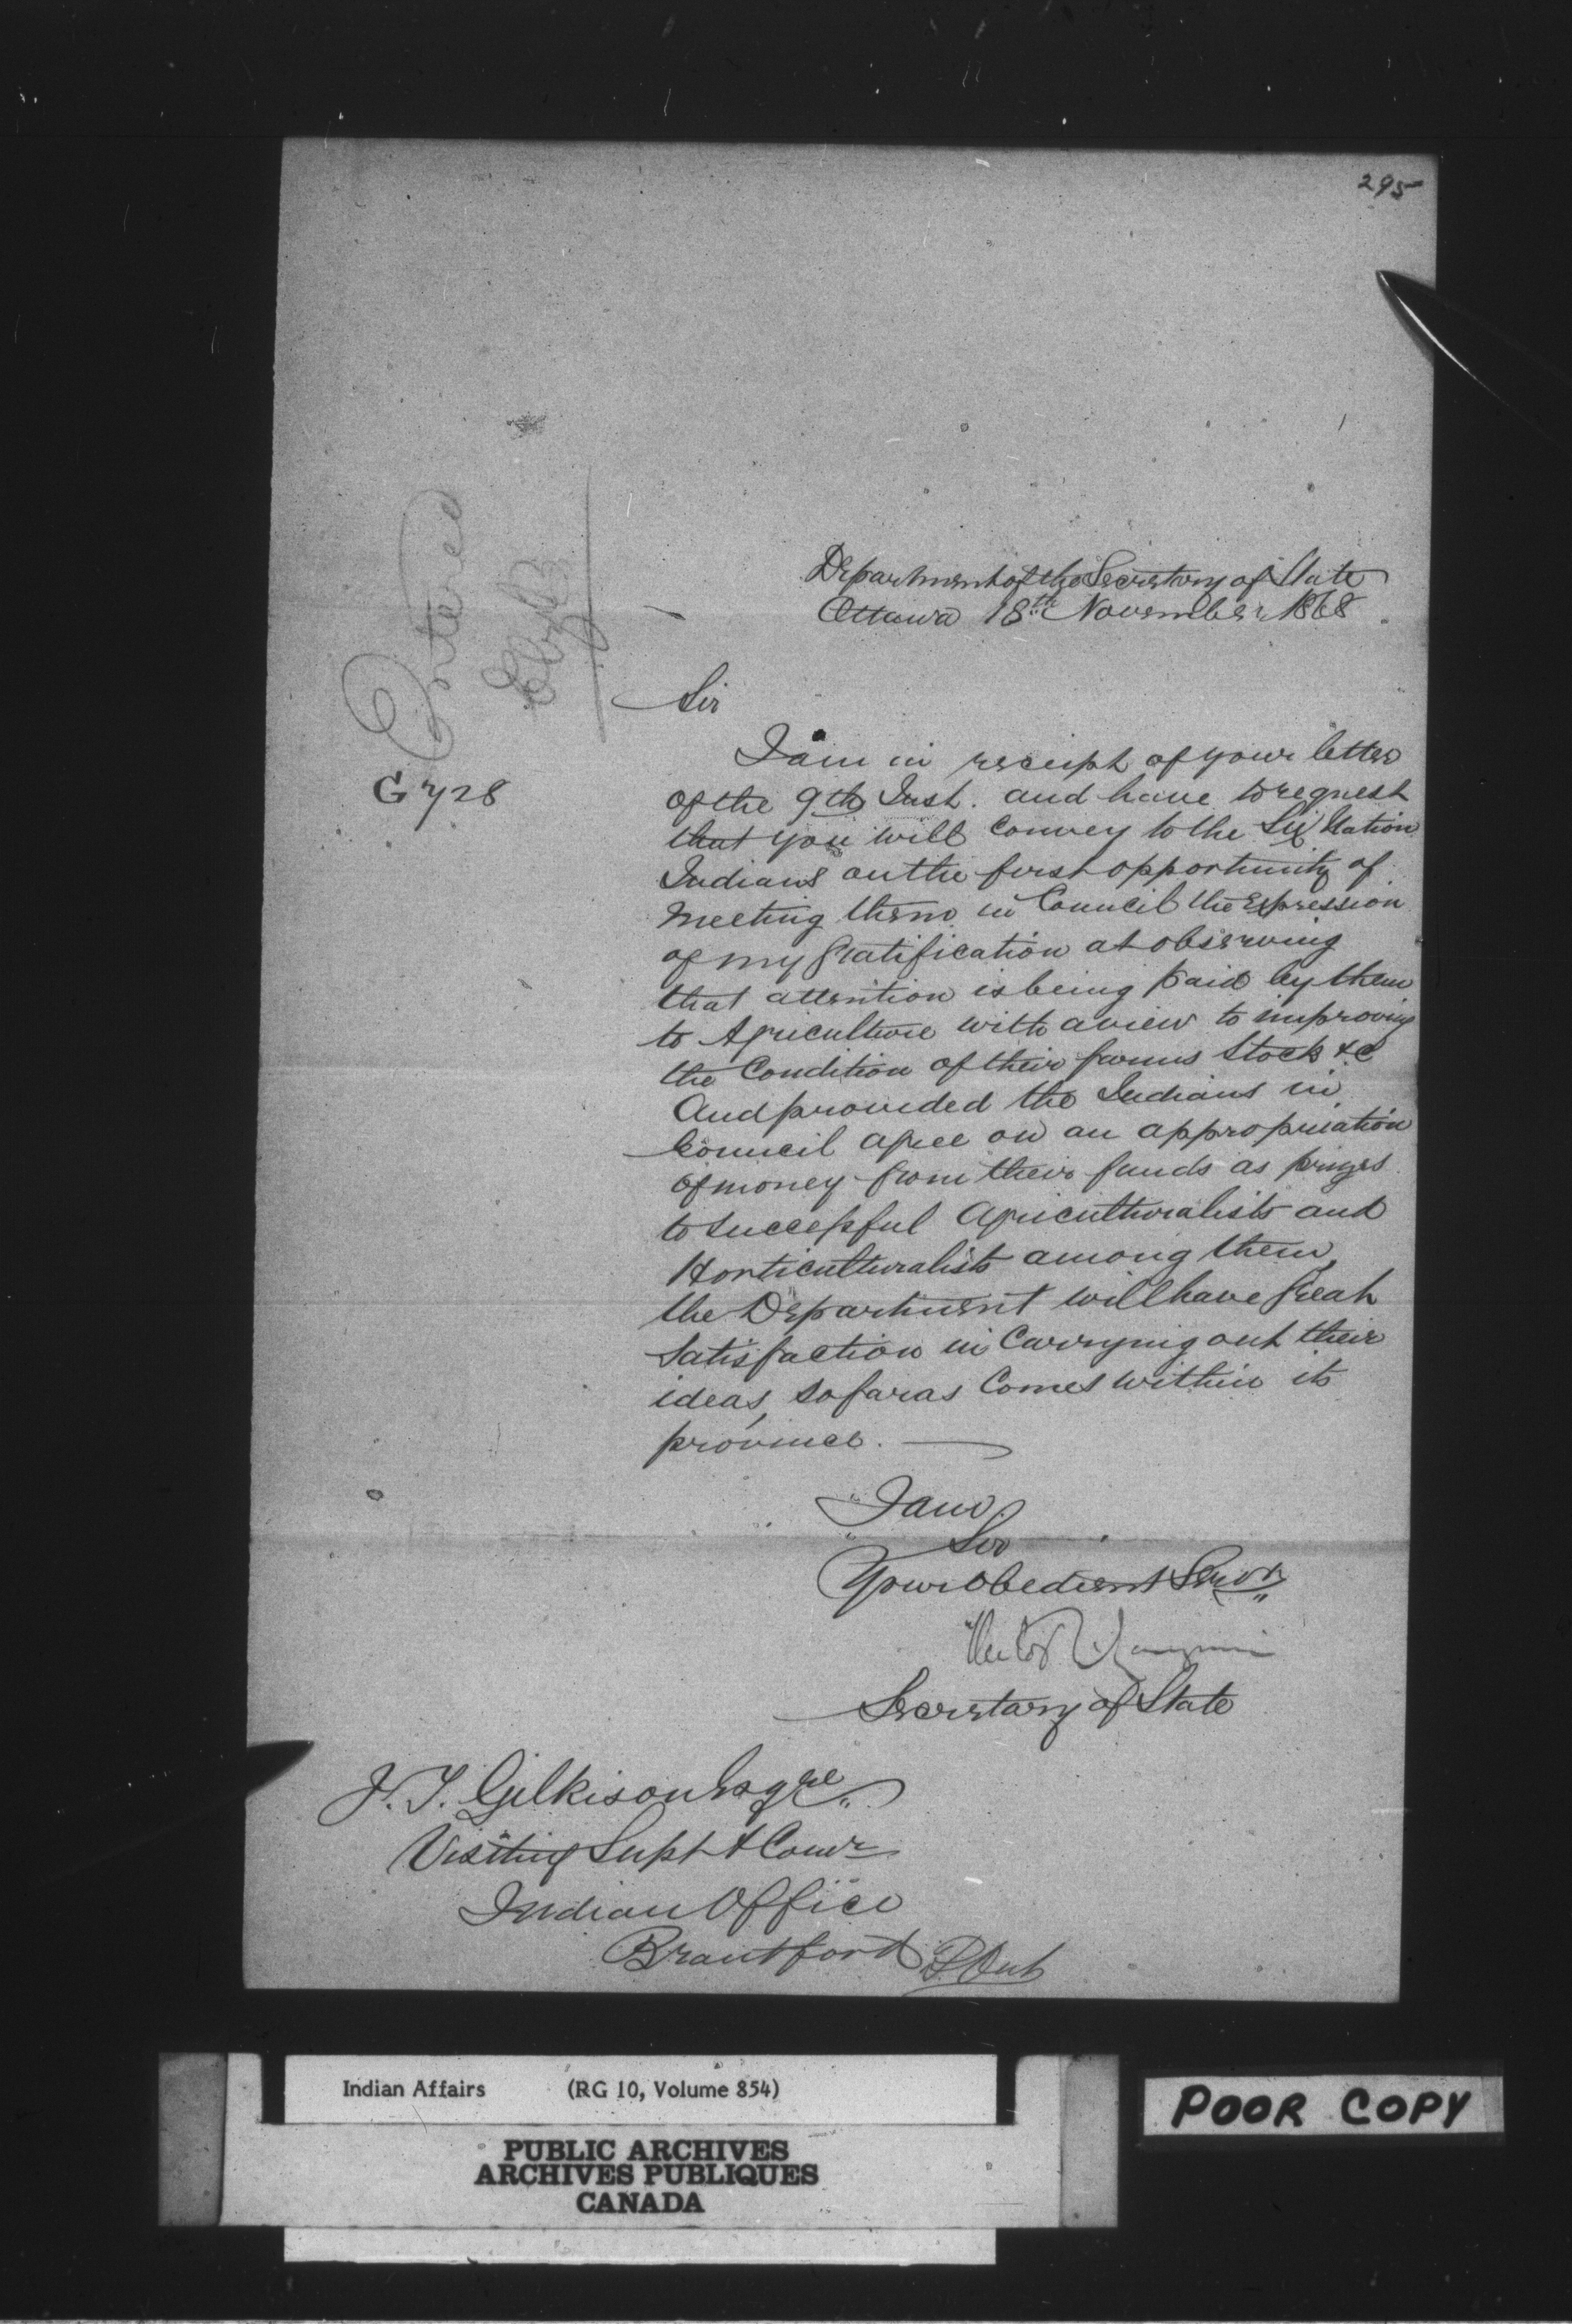 295
Department of the Secretary of State
Ottawa 18th November 1868
Entered
Sir
G 728
I am in receipt of your letter
of the 9th Inst. and have to request
that you will convey to the Six Nation
Indians on the first opportunity of
meeting them in Council the Expression
of my gratification at observing
that attention is being paid by them
to Agriculture with a view to improving
the Condition of their farms Stock &c
And provided the Indians in
Council agree on an appropriation
of money from their funds as prizes
to successful Agriculturalists and
Horticulturalists among them,
the Department will have great
satisfaction in Carrying out their
ideas, so far as Comes within its
province.
I am
Sir
Your obedient Servt
Secretary of State
J. T. Gilkison Esqre
Visiting Supt & Comr
Indian Office
Brantford
Indian Affairs (RG 10, Volume 854)
PUBLIC ARCHIVES
ARCHIVES PUBLIQUES
CANADA
POOR COPY